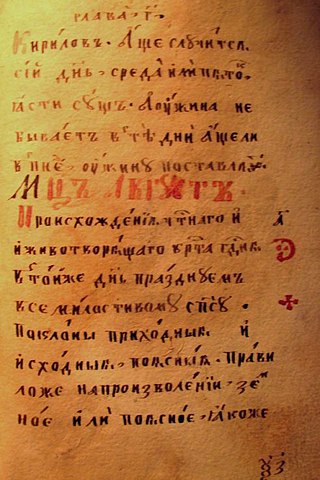 глава г҃
Кириловъ. Аще случится
сїй днь среда или пѧто
пости сущ. А оужина не
бываетъ в тѣ дни Аще ли
в оужину поставлѧ
Мцъ Август
Происхожденїѧ чтнаго и
и животворѧщаго крта гднѧ
в той же днь празднуемъ
всемилостивому спсу
Поклоны приходныѧ и
исходныѧ поѧсныѧ. Прави
ло же на произволенїи зе
ное или поѧсное ꙗкоже